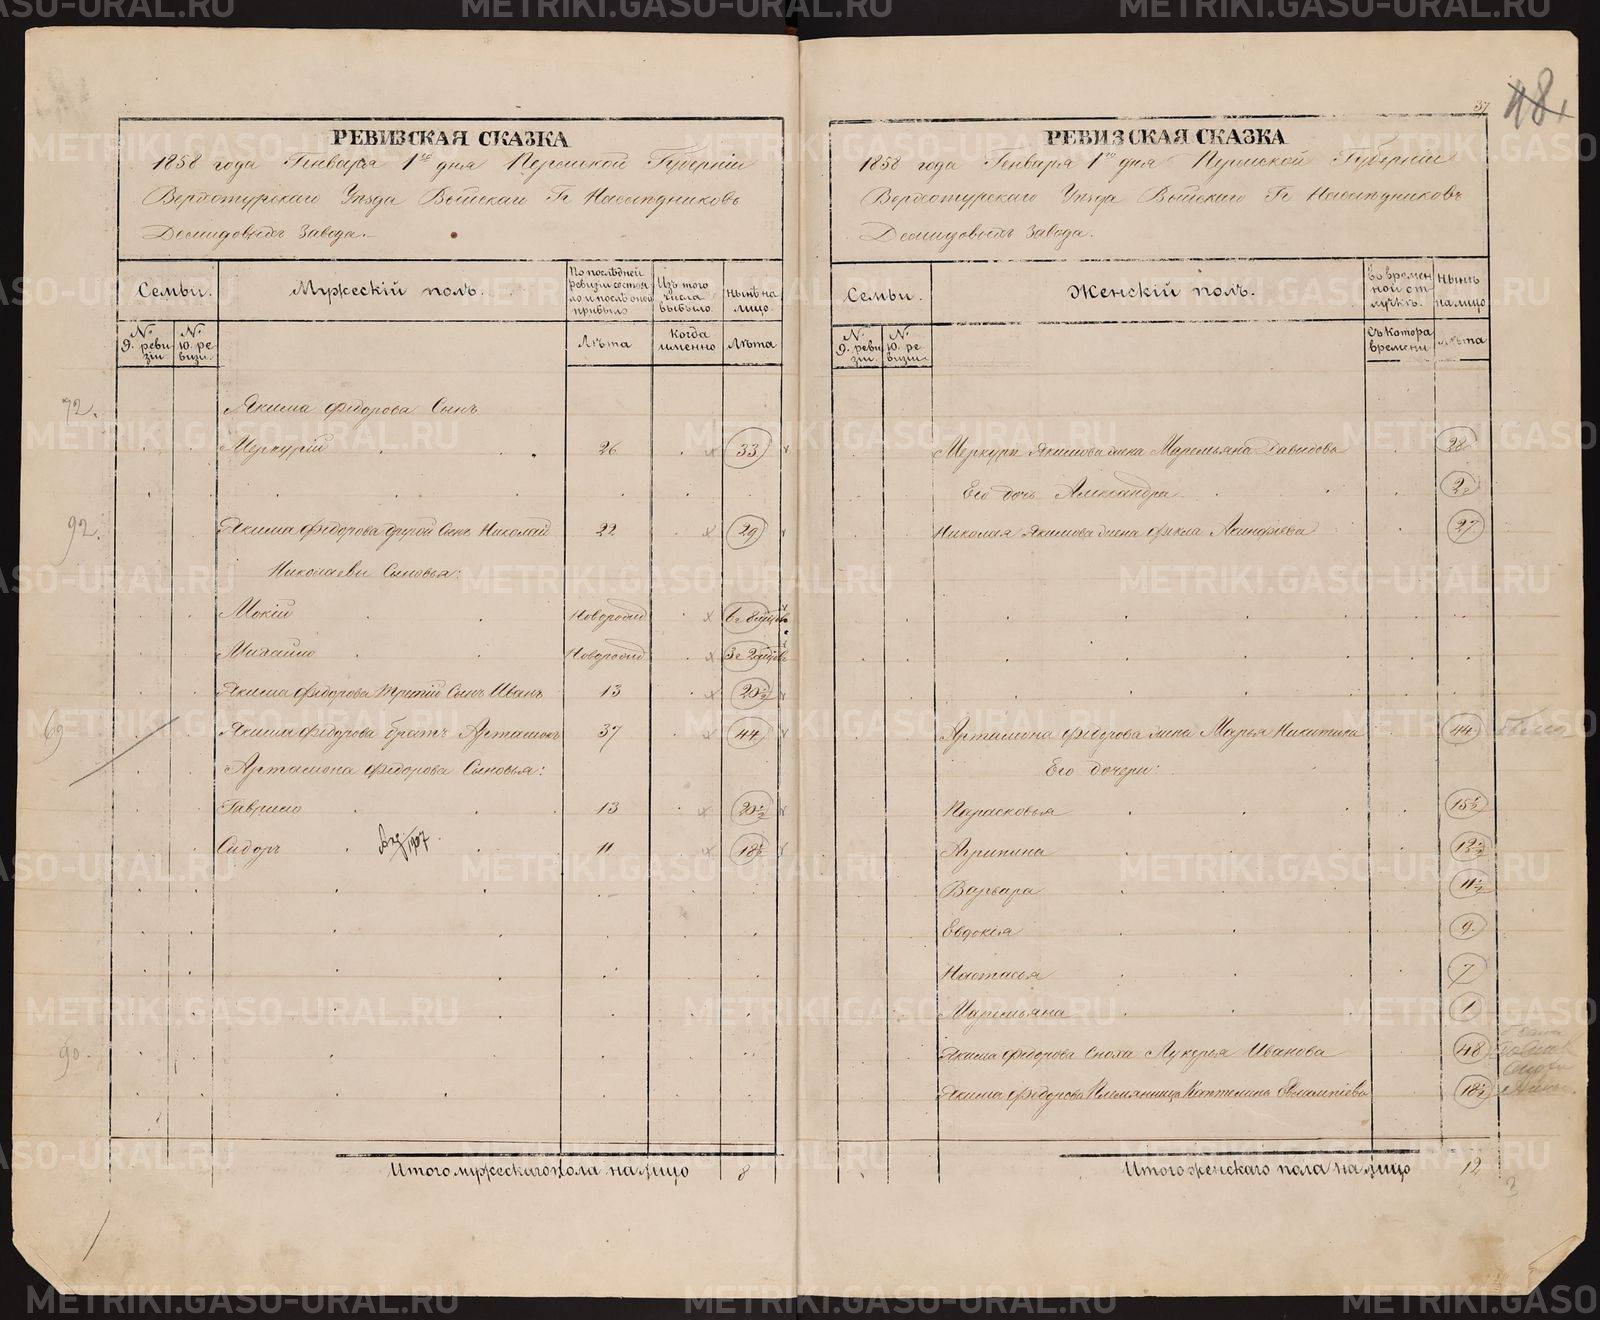 48
37
РЕВИЗСКАЯ СКАЗКА
1858 года Генваря 1го дня Пермской Губернiи
Верхотурскаго Уѣзда Выйскаго Гг Наслѣдниковъ
Демидовыхъ Завода.
Семьи.
Мужескiй полъ.
По послѣдней ревизiи состояло и послѣ оной прибыло
Изъ того числа выбыло.
Нынѣ на лицо.
№ 9. ревизiи
№ 10. ревизiи.
Лѣта
Когда именно
Лѣта
72.
Якима Федорова Сынъ
Меркурiй 26 33
92.
Якима Федорова другой Сынъ Николай 22 29
Николаевы Сыновья:
Мокiй Новорожд
Михайло Новорожд
Якима Федорова третiй Сынъ Иванъ 13 20½
69
Якима Федорова братъ Артамонъ 37 44
Артамона Федорова Сыновья:
Гаврило 13 20½
Сидоръ 11 18½
90.
Итого мужескаго пола на лицо 8
РЕВИЗСКАЯ СКАЗКА
1858 года Генваря 1го дня Пермской Губернiи
Верхотурскаго Уѣзда Выйскаго Гг Наслѣдниковъ
Демидовыхъ Завода.
Семьи.
Женскiй полъ.
Во временной отлучкѣ.
Нынѣ на лицо
№ 9. ревизiи.
№ 10. ревизiи.
Съ котора времени
Лѣта
Меркурiя Якимова жена Маремьяна Давидова 28
Его дочь Александра
Николая Якимова жена Фекла Акинфiева 27
Артамона Федорова жена Марья Никитина 44
Его дочери:
Парасковья 15½
Агрипина 13½
Варвара 11½
Евдокiя 9
Настасья 7
Маремьяна 1
Якима Федорова Сноха Лукерья Иванова 48
Якима Федорова Племянница Каптелина Евлампiева 18½
Итого женскаго пола на лицо 12
3
METRIKI.GASO-URAL.RU